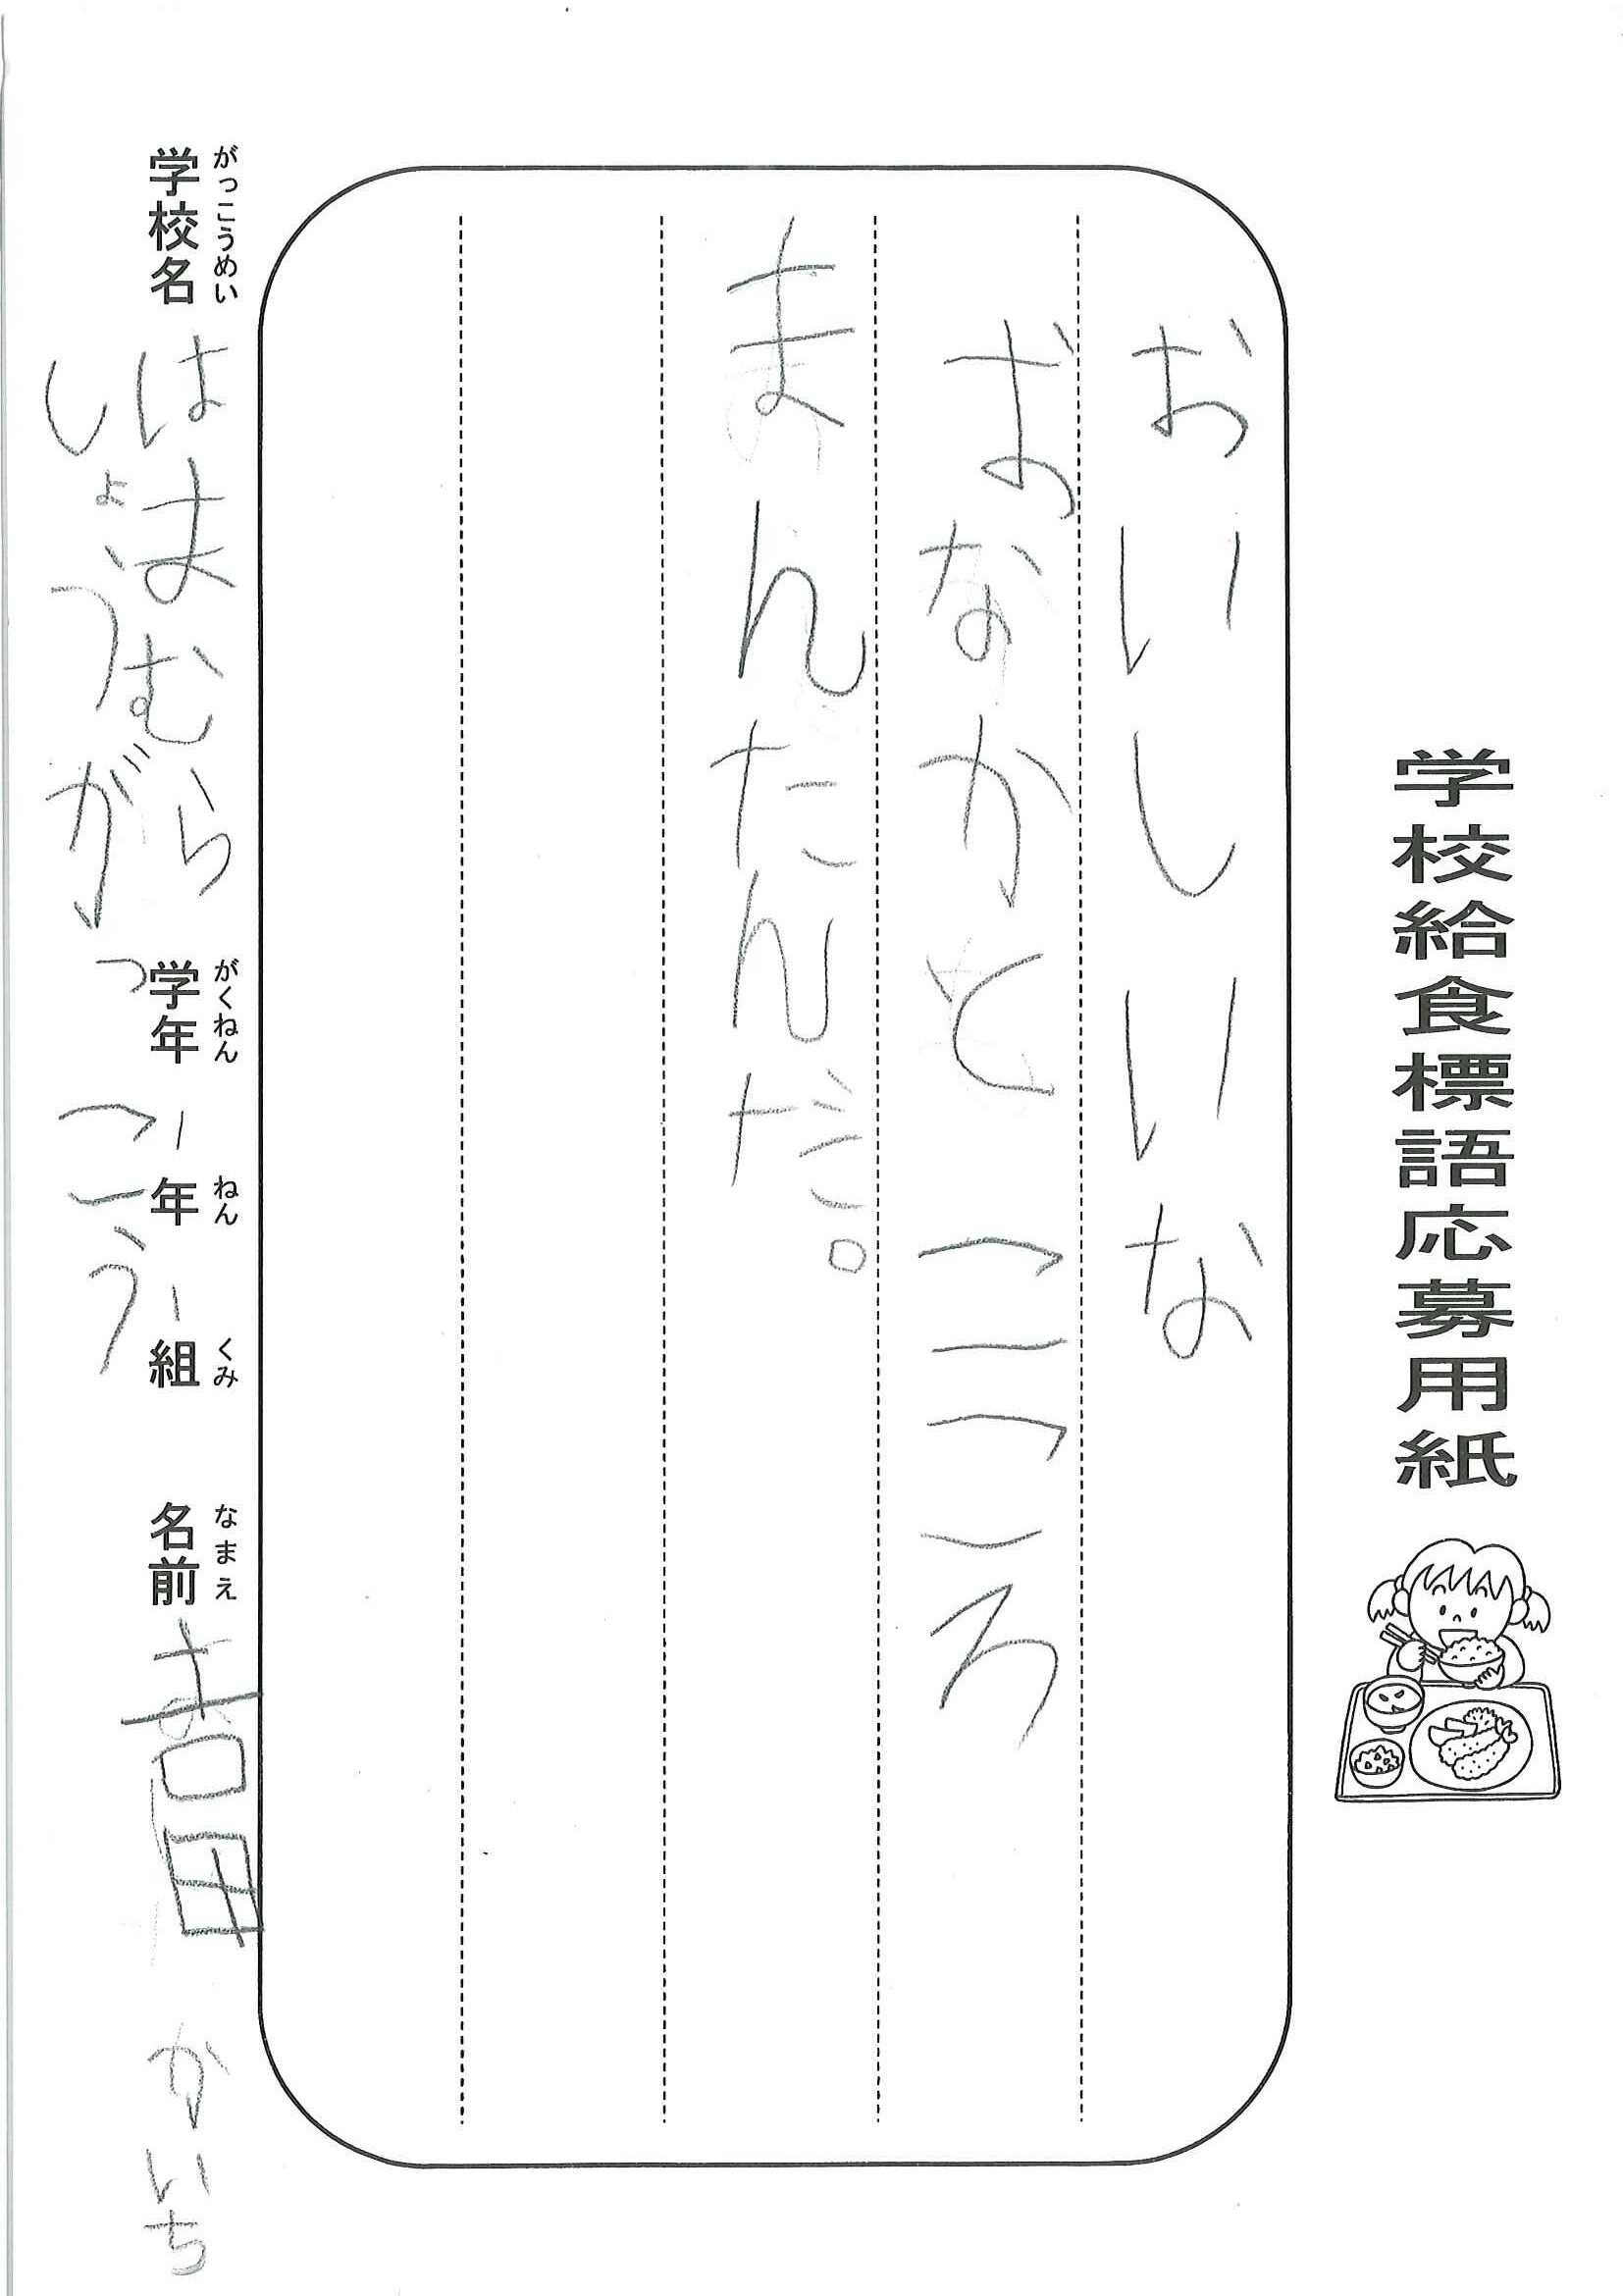 学校給食標語応募用紙
おいしいな
おなかとこころ
まんたんだ。
がっこうめい
学校名 はまむら
しょうがっこう
がくねん ねん くみ
学年 1年 1組
なまえ
名前 吉田 かいち